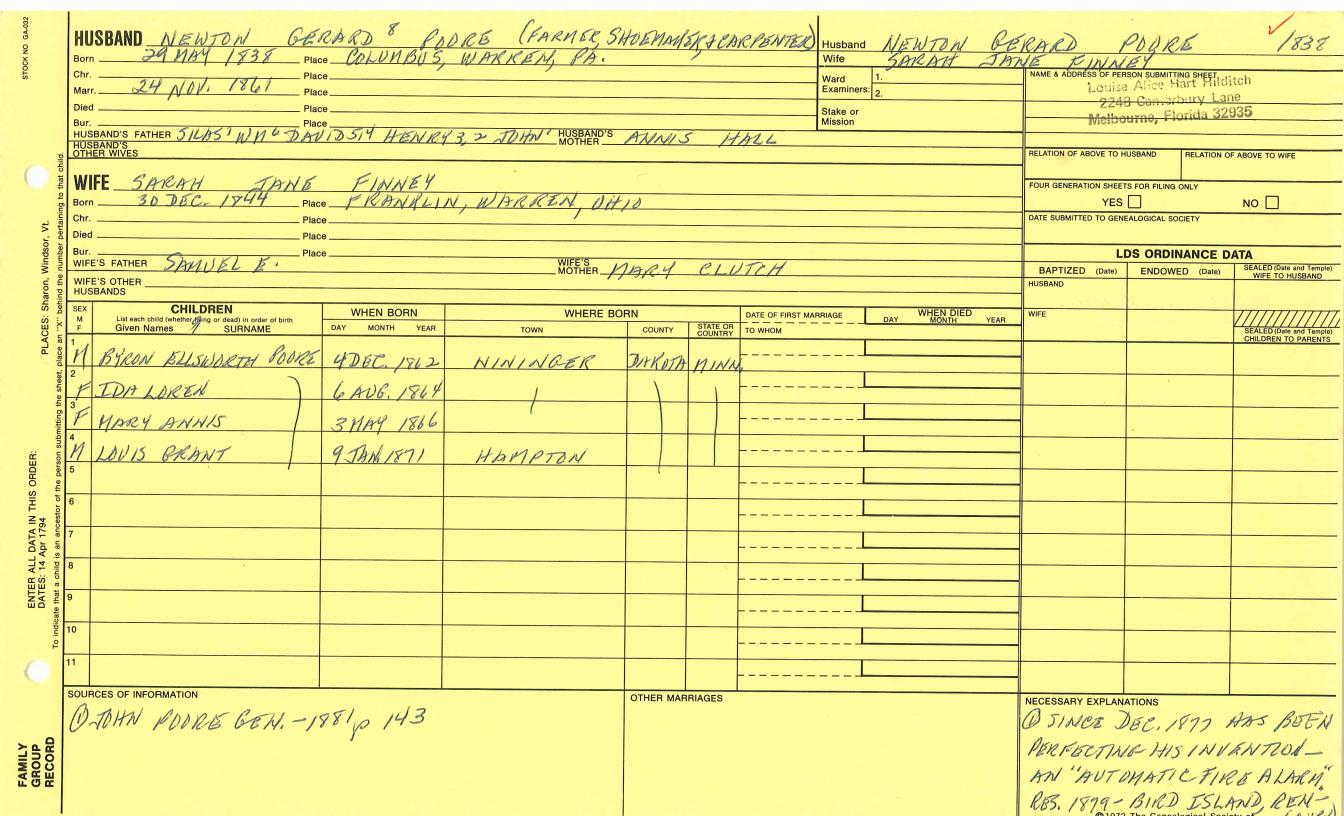 STOCK NO. GA-032
HUSBAND NEWTON GERARD 8 POORE (FARMER, SHOEMAKER & CARPENTER)
Born 29 MAY 1838 Place COLUMBUS, WARREN, PA.
Chr. Place
Marr. 24 NOV. 1861 Place
Died Place
Bur. Place
HUSBAND'S FATHER SILAS 7 WM 6 DAVID 5, 4 HENRY 3, 2 JOHN 1 HUSBAND'S MOTHER ANNIS HALL
HUSBAND'S OTHER WIVES
Husband NEWTON GERARD POORE 1838
Wife SARAH JANE FINNEY
Ward Examiners: 1.
2.
Stake or Mission
NAME & ADDRESS OF PERSON SUBMITTING SHEET
Louise Alice Hart Hilditch
2248 Canterbury Lane
Melbourne, Florida 32935
RELATION OF ABOVE TO HUSBAND RELATION OF ABOVE TO WIFE
FOUR GENERATION SHEETS FOR FILING ONLY
YES NO
DATE SUBMITTED TO GENEALOGICAL SOCIETY
WIFE SARAH JANE FINNEY
Born 30 DEC. 1844 Place FRANKLIN, WARREN, OHIO
Chr. Place
Died Place
Bur. Place
WIFE'S FATHER SAMUEL E. WIFE'S MOTHER MARY CLUTCH
WIFE'S OTHER HUSBANDS
LDS ORDINANCE DATA
BAPTIZED (Date) ENDOWED (Date) SEALED (Date and Temple) WIFE TO HUSBAND
HUSBAND
WIFE
SEALED (Date and Temple) CHILDREN TO PARENTS
SEX M F CHILDREN WHEN BORN WHERE BORN DATE OF FIRST MARRIAGE WHEN DIED
List each child (whether living or dead) in order of birth
Given Names SURNAME DAY MONTH YEAR TOWN COUNTY STATE OR COUNTRY TO WHOM DAY MONTH YEAR
1 M BYRON ELLSWORTH POORE 4 DEC. 1862 NININGER DAKOTA MINN.
2 F IDA LOREN 6 AUG. 1864
3 F MARY ANNIS 3 MAY 1866
4 M LOUIS GRANT 9 JAN. 1871 HAMPTON
5
6
7
8
9
10
11
SOURCES OF INFORMATION
① JOHN POORE GEN. - 1881 p 143
OTHER MARRIAGES
NECESSARY EXPLANATIONS
① SINCE DEC. 1877 HAS BEEN
PERFECTING HIS INVENTION—
AN "AUTOMATIC FIRE ALARM".
RES. 1879 - BIRD ISLAND, REN-
©1972 The Genealogical Society of
PLACES: Sharon, Windsor, Vt.
ENTER ALL DATA IN THIS ORDER:
DATES: 14 Apr 1794
To indicate that a child is an ancestor of the person submitting the sheet, place an "X" behind the number pertaining to that child.
FAMILY GROUP RECORD